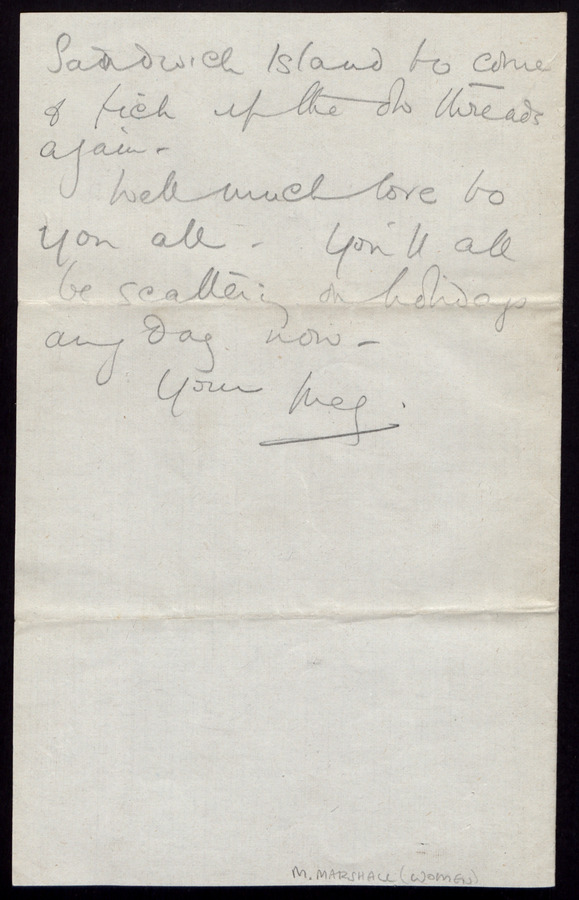 Sandwich Island to come
& pick up the old threads
again -
Well much love to
you all - You'll all
be scattering on holidays
any day now -
Your Meg.
M. MARSHALL (WOMEN)